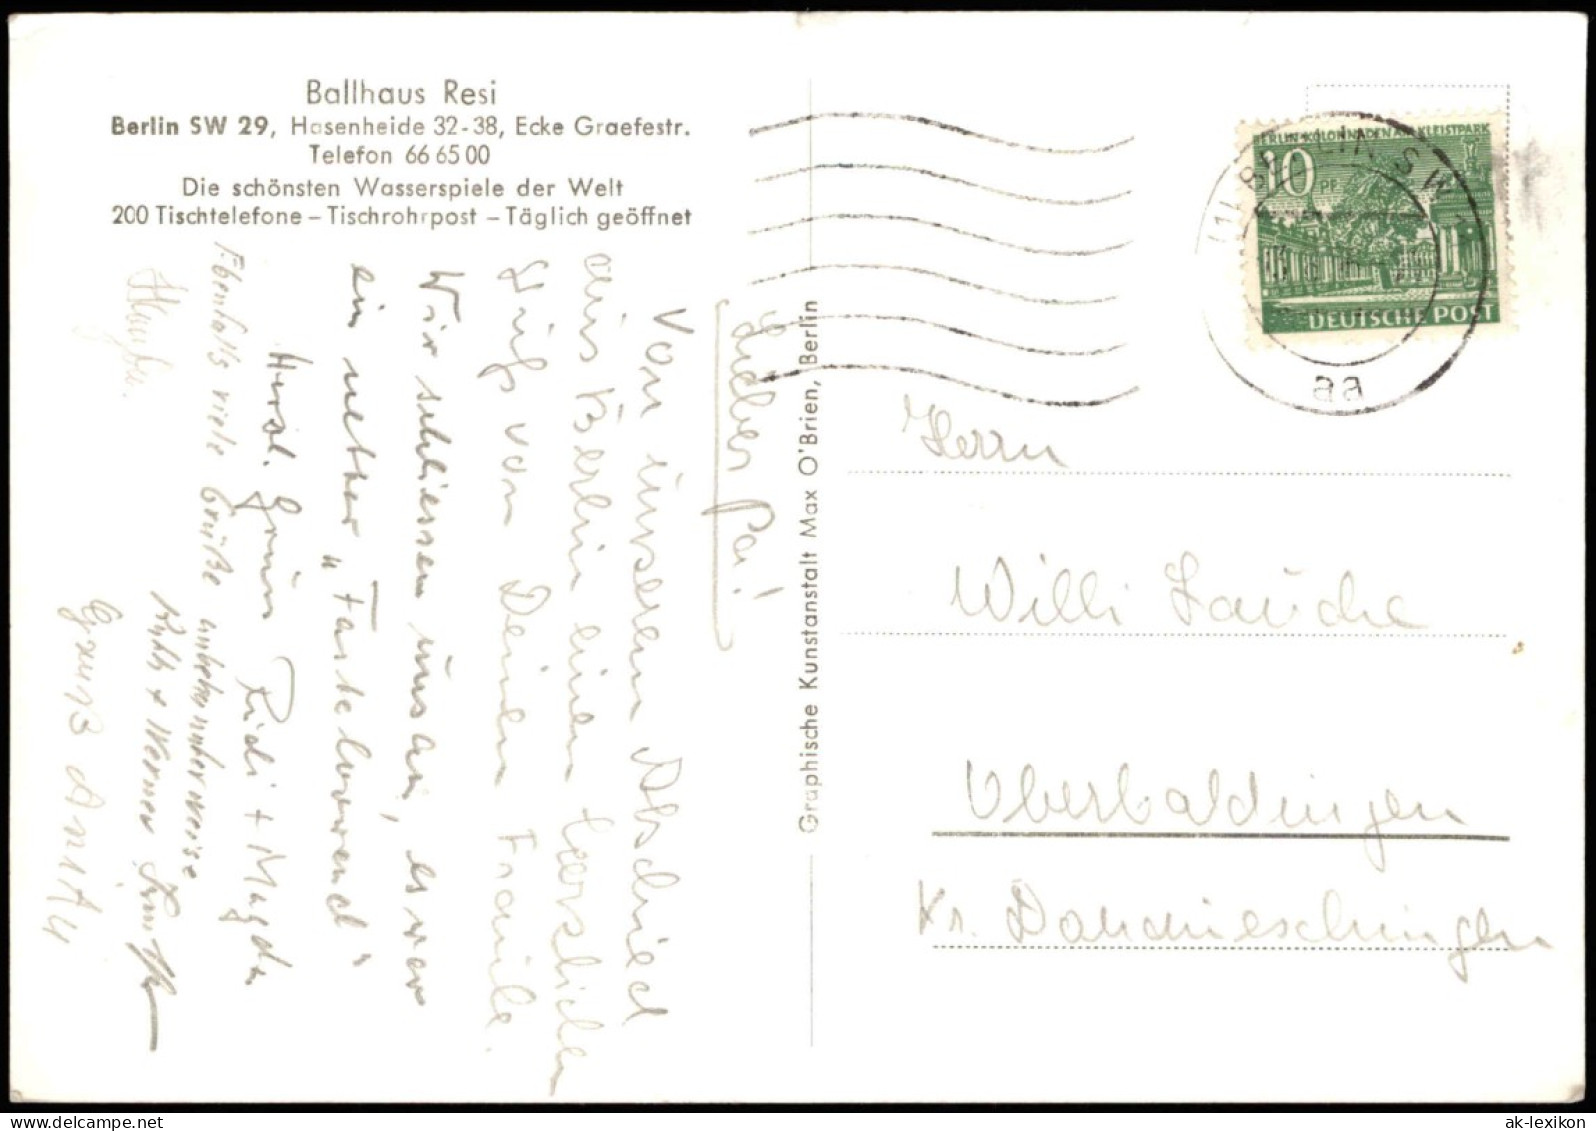 Ballhaus Resi
Berlin SW 29, Hasenheide 32-38, Ecke Graefestr.
Telefon 66 65 00
Die schönsten Wasserspiele der Welt
200 Tischtelefone – Tischrohrpost – Täglich geöffnet
Lieber Pa!
Von unserem Abschied
aus Berlin einen herzlichen
Gruß von Deiner Familie.
Wir schliessen uns an, es war
ein netter „Fastelovvend"
Herzl. Grüsse Rudi + Magda
Ebenfalls viele Grüße unbekannterweise
Ruth + Werner
Gruß Anita
Graphische Kunstanstalt Max O'Brien, Berlin
BERLIN·KOLONNADEN AM KLEISTPARK
10 PF
DEUTSCHE POST
(1) BERLIN SW
aa
Herrn
Willi Lauche
Oberbaldingen
Kr. Donaueschingen
ak-lexikon